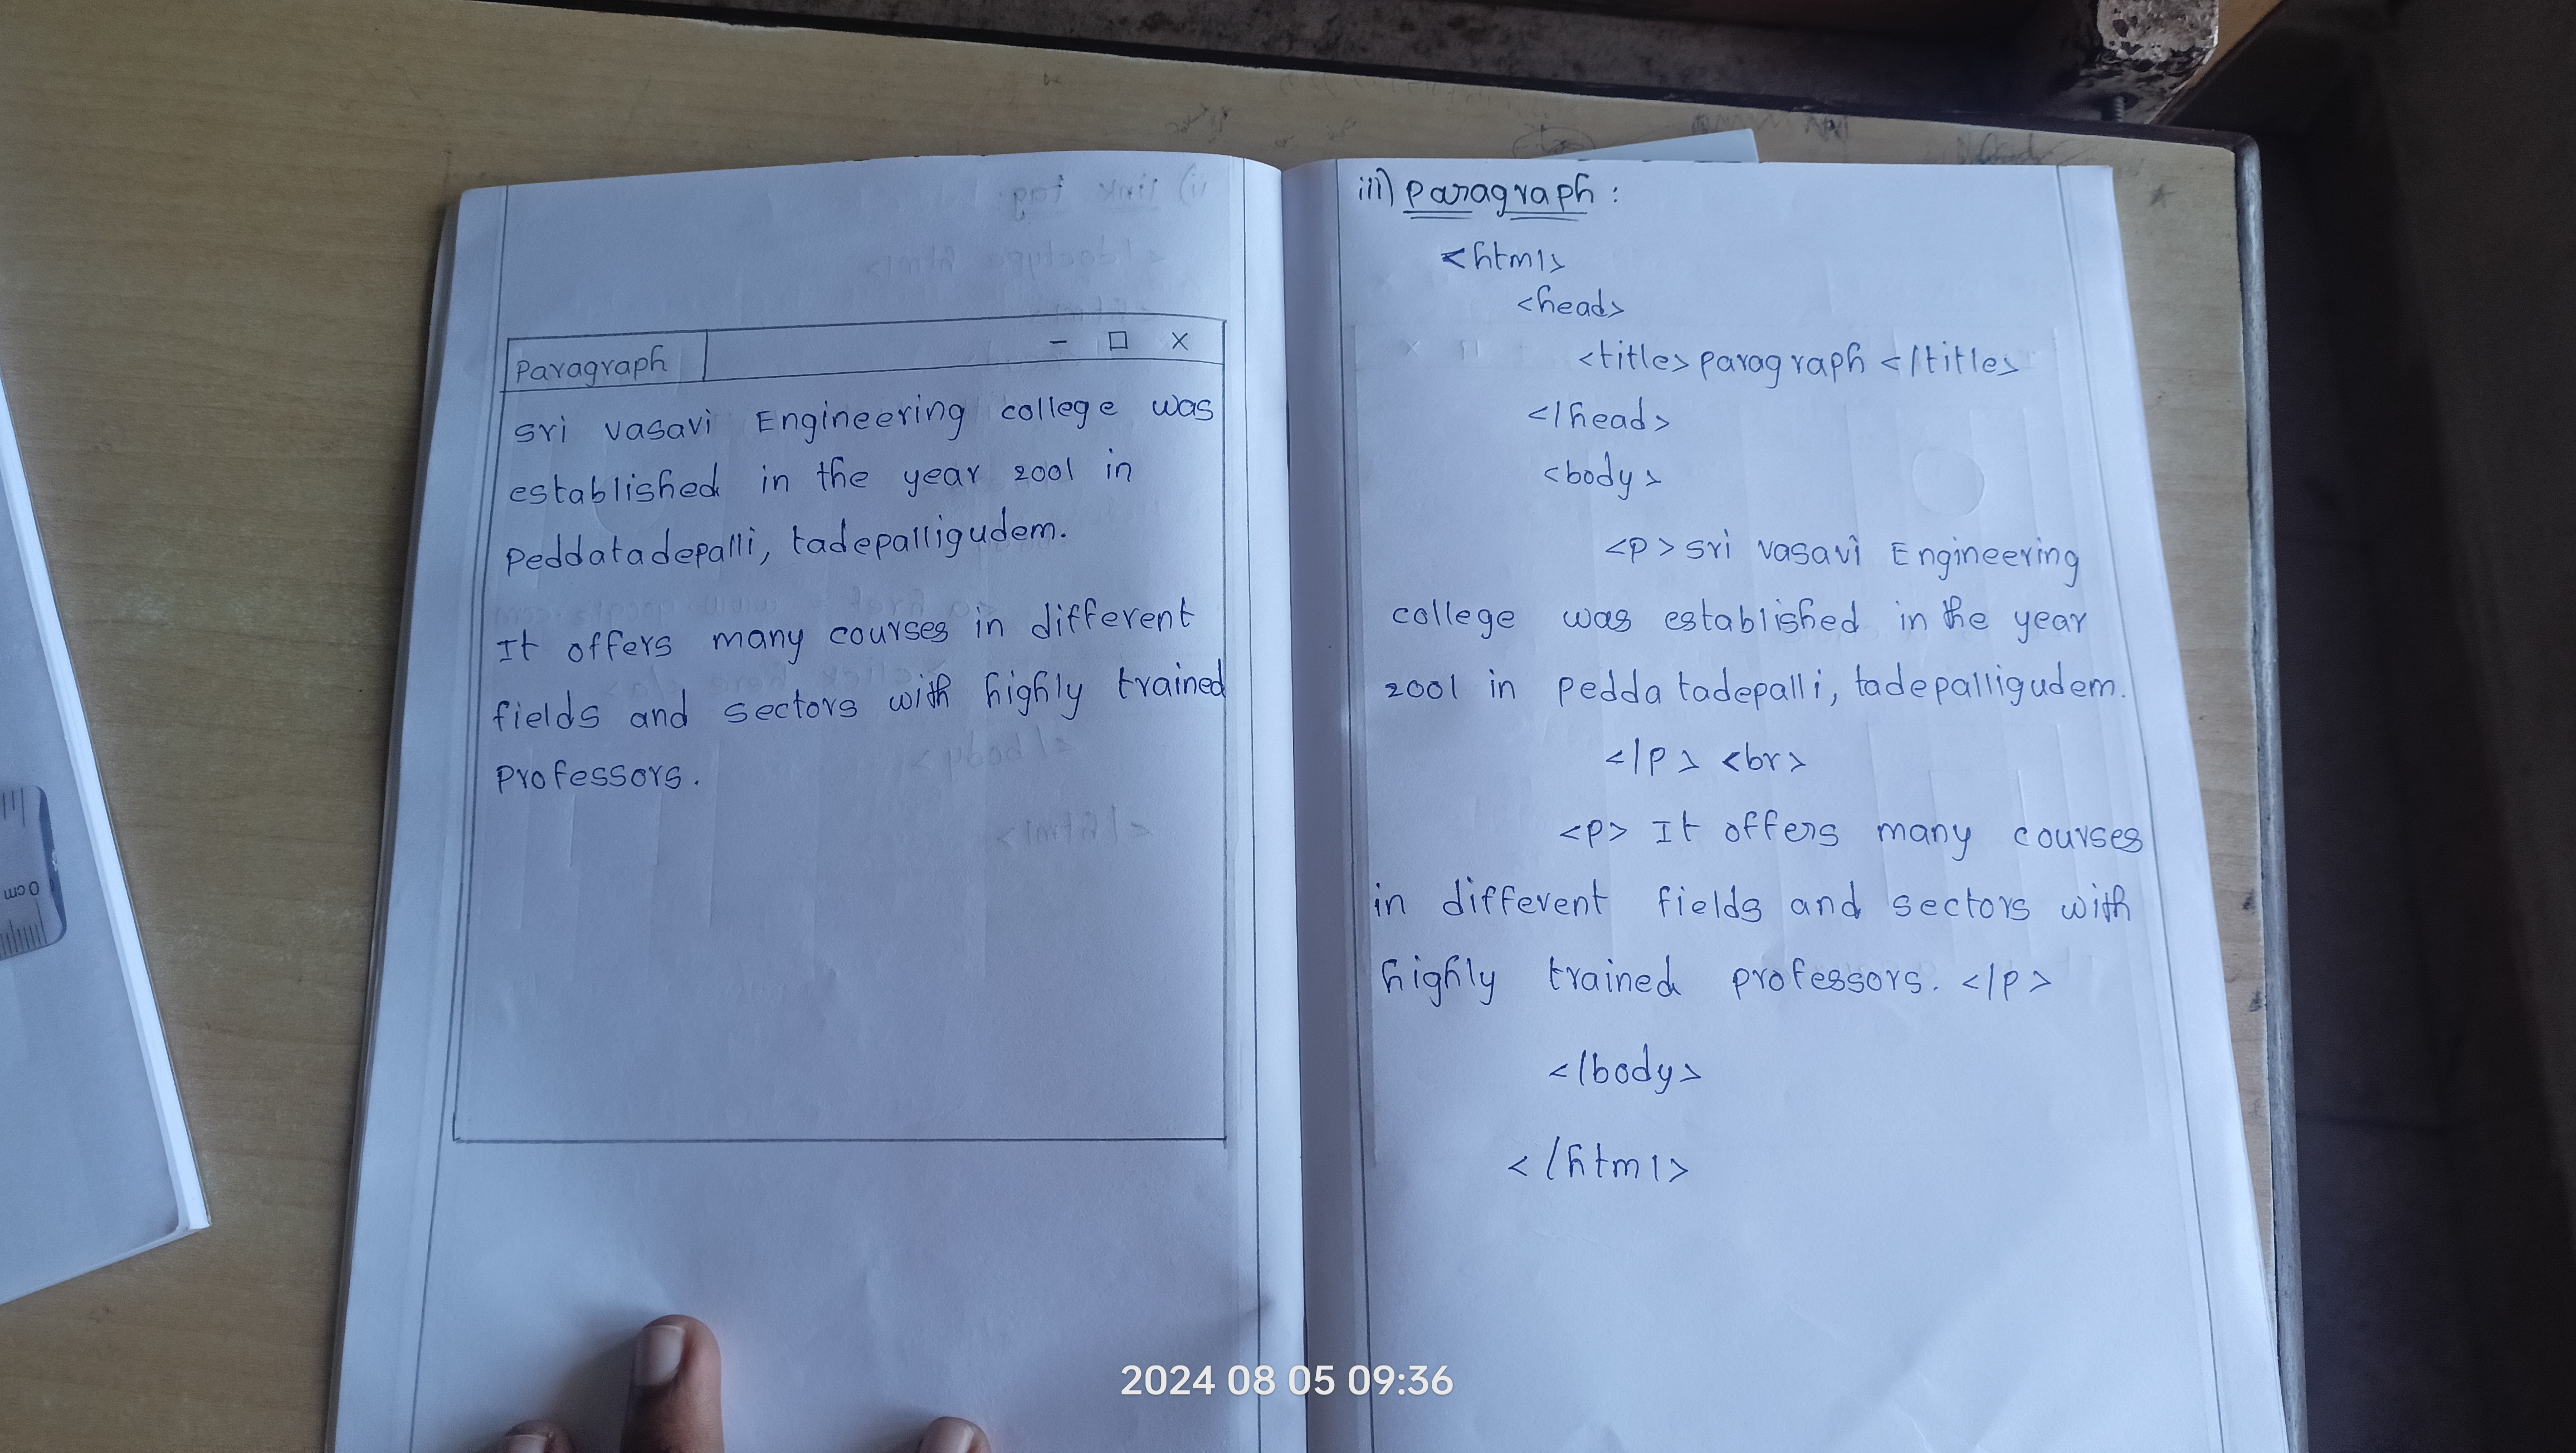 Paragraph - □ x
sri vasavi Engineering college was
established in the year 2001 in
Peddatadepalli, tadepalligudem.
It offers many courses in different
fields and sectors with highly trained
Professors.
iii) paragraph :
<html>
<head>
<title> paragraph </title>
</head>
<body>
<p> sri vasavi Engineering
college was established in the year
2001 in pedda tadepalli, tadepalligudem.
</p> <br>
<p> It offers many courses
in different fields and sectors with
highly trained professors. </p>
</body>
</html>
0 cm
2024 08 05 09:36